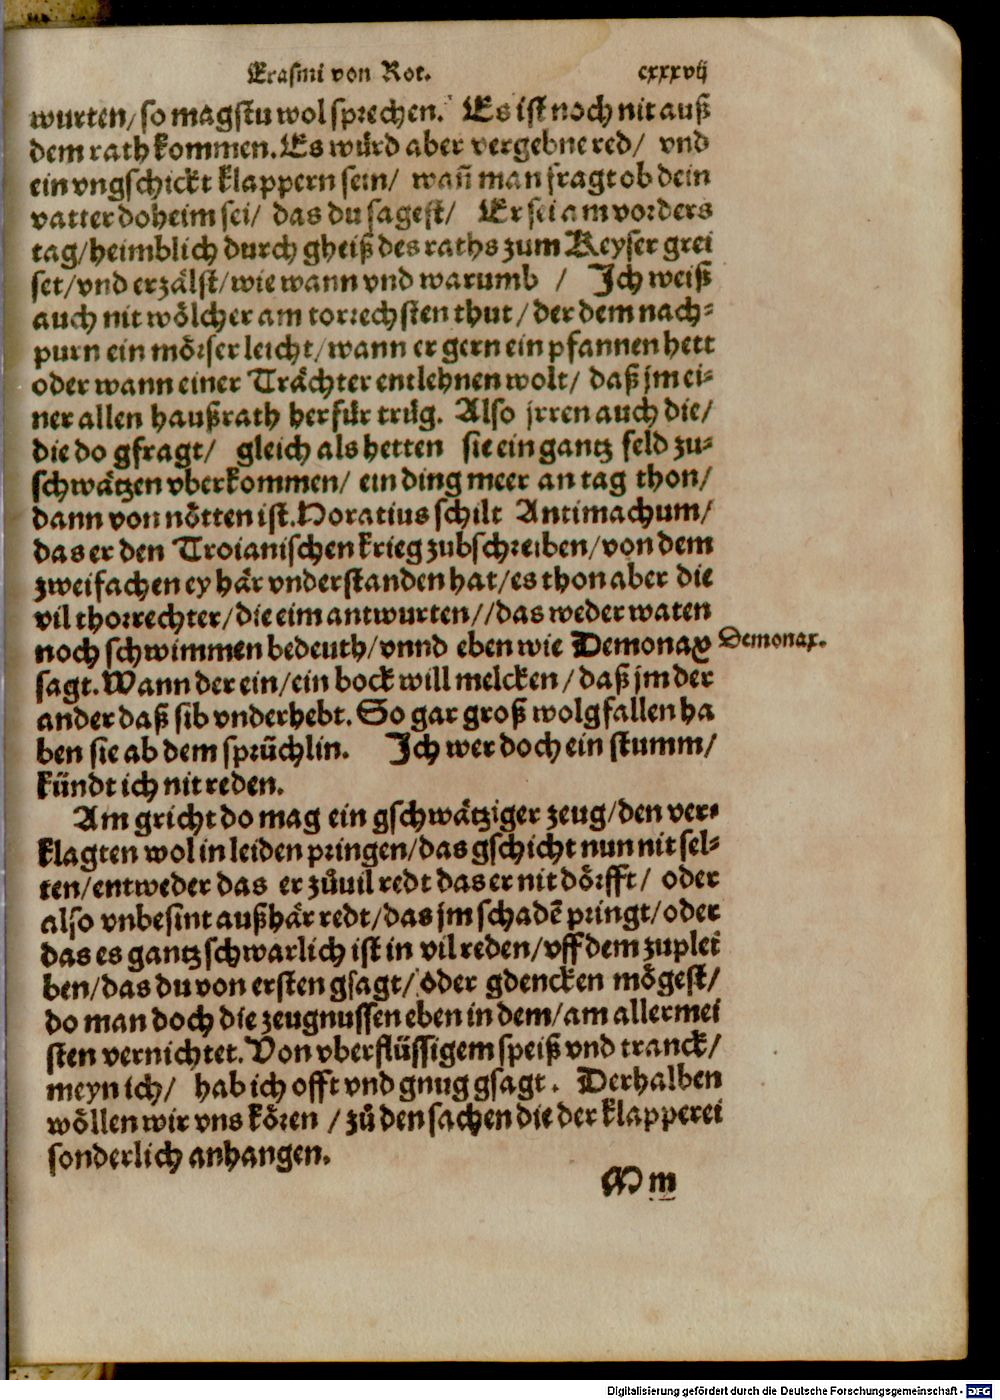 Erasmi von Rot. cxxxvij
wurten/ so magstu wol sprechen. Es ist noch nit auß
dem rath kommen. Es würd aber vergebne red/ vnd
ein vngschickt klappern sein/ wañ man fragt ob dein
vatter doheim sei/ das du sagest/ Er sei am vorders
tag/ heimblich durch gheiß des raths zum Keyser grei
set/ vnd erzälst/ wie wann vnd warumb / Ich weiß
auch nit wölcher am torrechsten thut/ der dem nach-
purn ein mörser leicht/ wann er gern ein pfannen hett
oder wann einer Trächter entlehnen wolt/ daß jm ei-
ner allen haußrath herfür trüg. Also jrren auch die/
die do gfragt/ gleich als hetten sie ein gantz feld zu-
schwätzen vberkommen/ ein ding meer an tag thon/
dann von nötten ist. Horatius schilt Antimachum/
das er den Troianischen krieg zubschreiben/ von dem
zweifachen ey här vnderstanden hat/ es thon aber die
vil thorrechter/ die eim antwurten// das weder waten
noch schwimmen bedeuth/ vnnd eben wie Demonax
Demonax.
sagt. Wann der ein/ ein bock will melcken/ daß jm der
ander daß sib vnderhebt. So gar groß wolgfallen ha
ben sie ab dem sprüchlin. Ich wer doch ein stumm/
kündt ich nit reden.
Am gricht do mag ein gschwätziger zeug/ den ver-
klagten wol in leiden pringen/ das gschicht nun nit sel-
ten/ entweder das er zůuil redt das er nit dörfft/ oder
also vnbesint außhär redt/ das jm schadẽ pringt/ oder
das es gantz schwarlich ist in vil reden/ vff dem zuplei
ben/ das du von ersten gsagt/ oder gdencken mögest/
do man doch die zeugnussen eben in dem/ am allermei
sten vernichtet. Von vberflüssigem speiß vnd tranck/
meyn ich/ hab ich offt vnd gnug gsagt. Derhalben
wöllen wir vns kören / zů den sachen die der klapperei
sonderlich anhangen.
M m
Digitalisierung gefördert durch die Deutsche Forschungsgemeinschaft - DFG